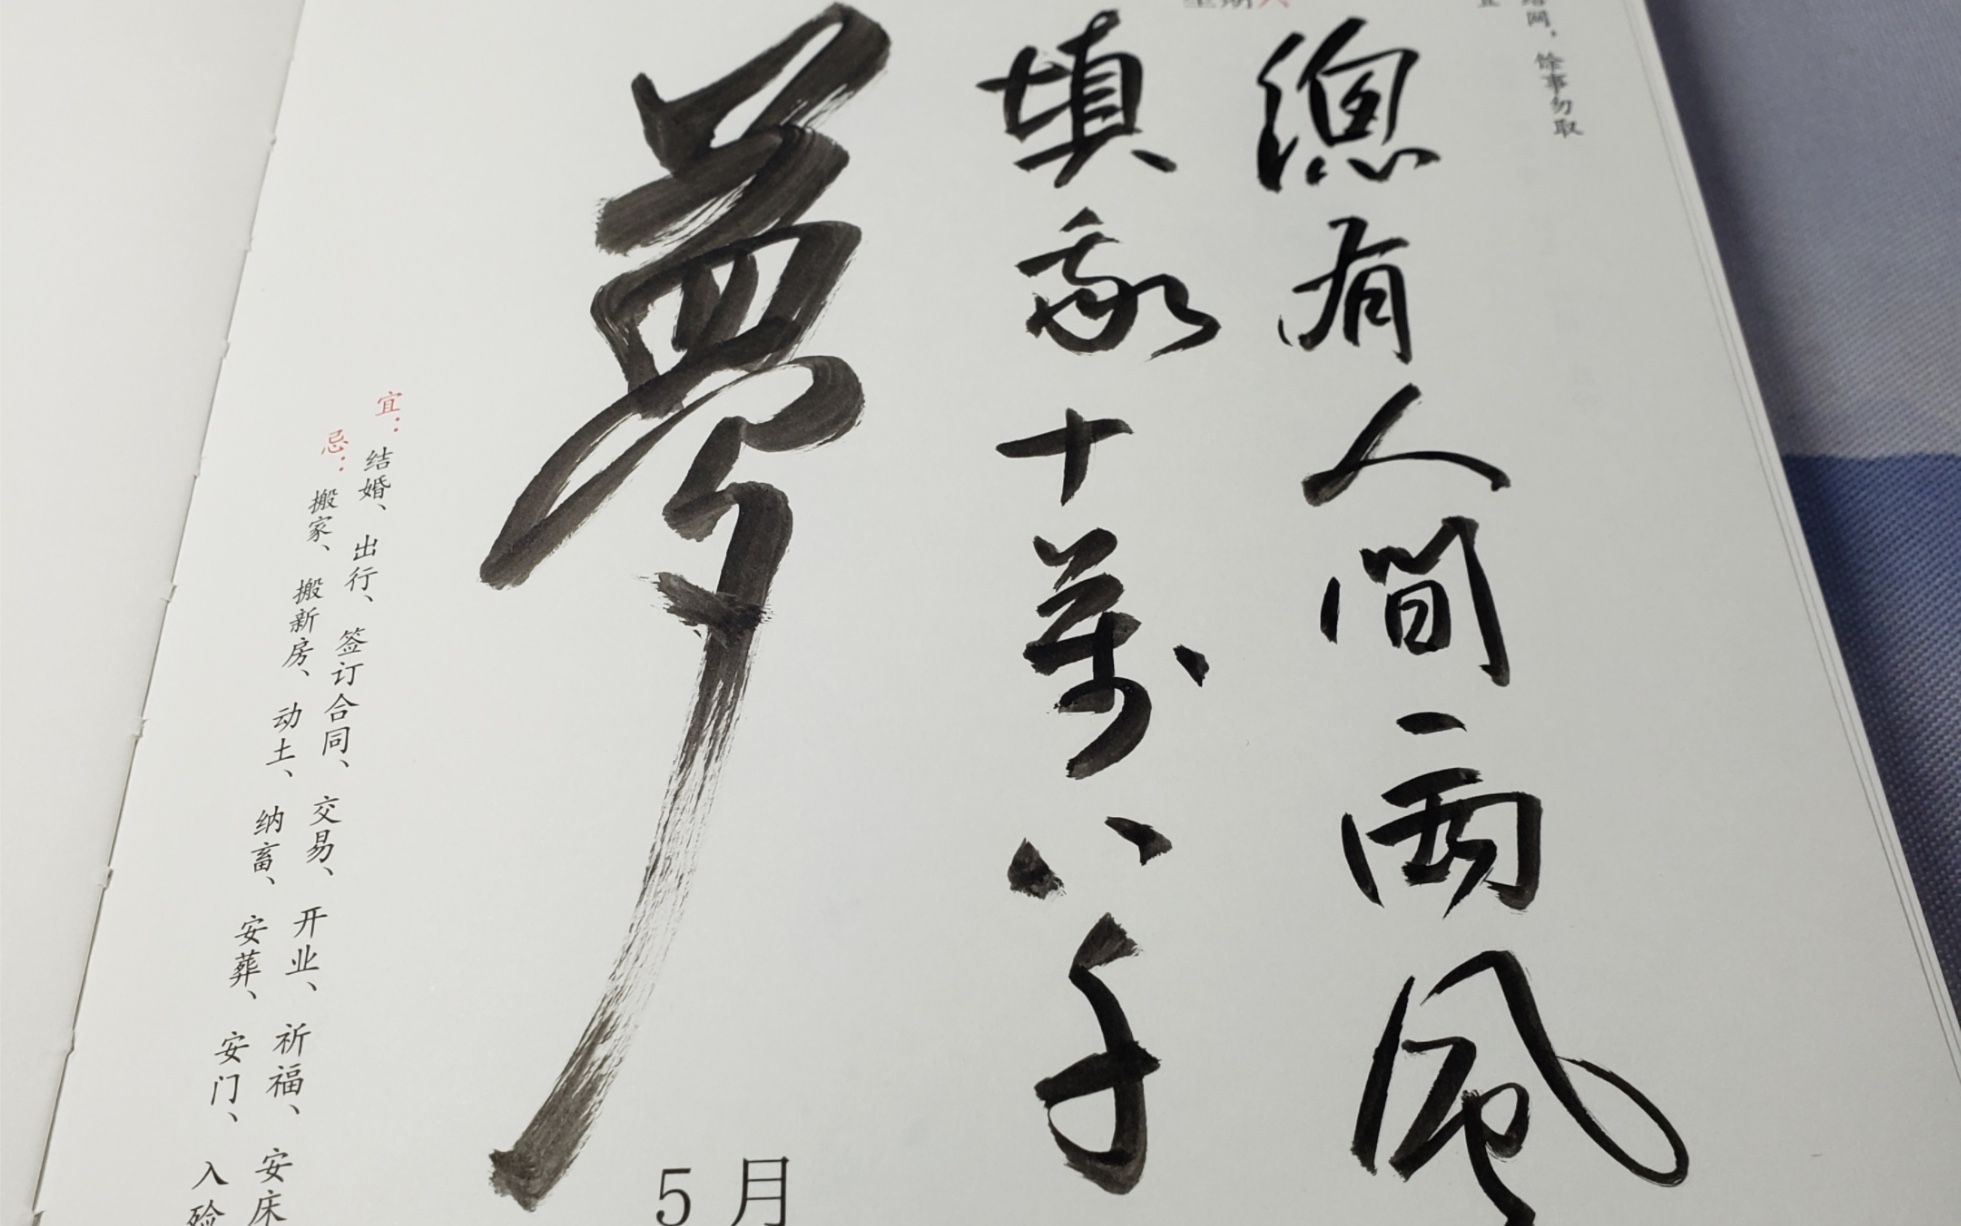 餘事勿取
總有人間一兩風
填我十萬八千
夢
宜：结婚、出行、签订合同、交易、开业、祈福、安床
忌：搬家、搬新房、动土、纳畜、安葬、安门、入殓
5月